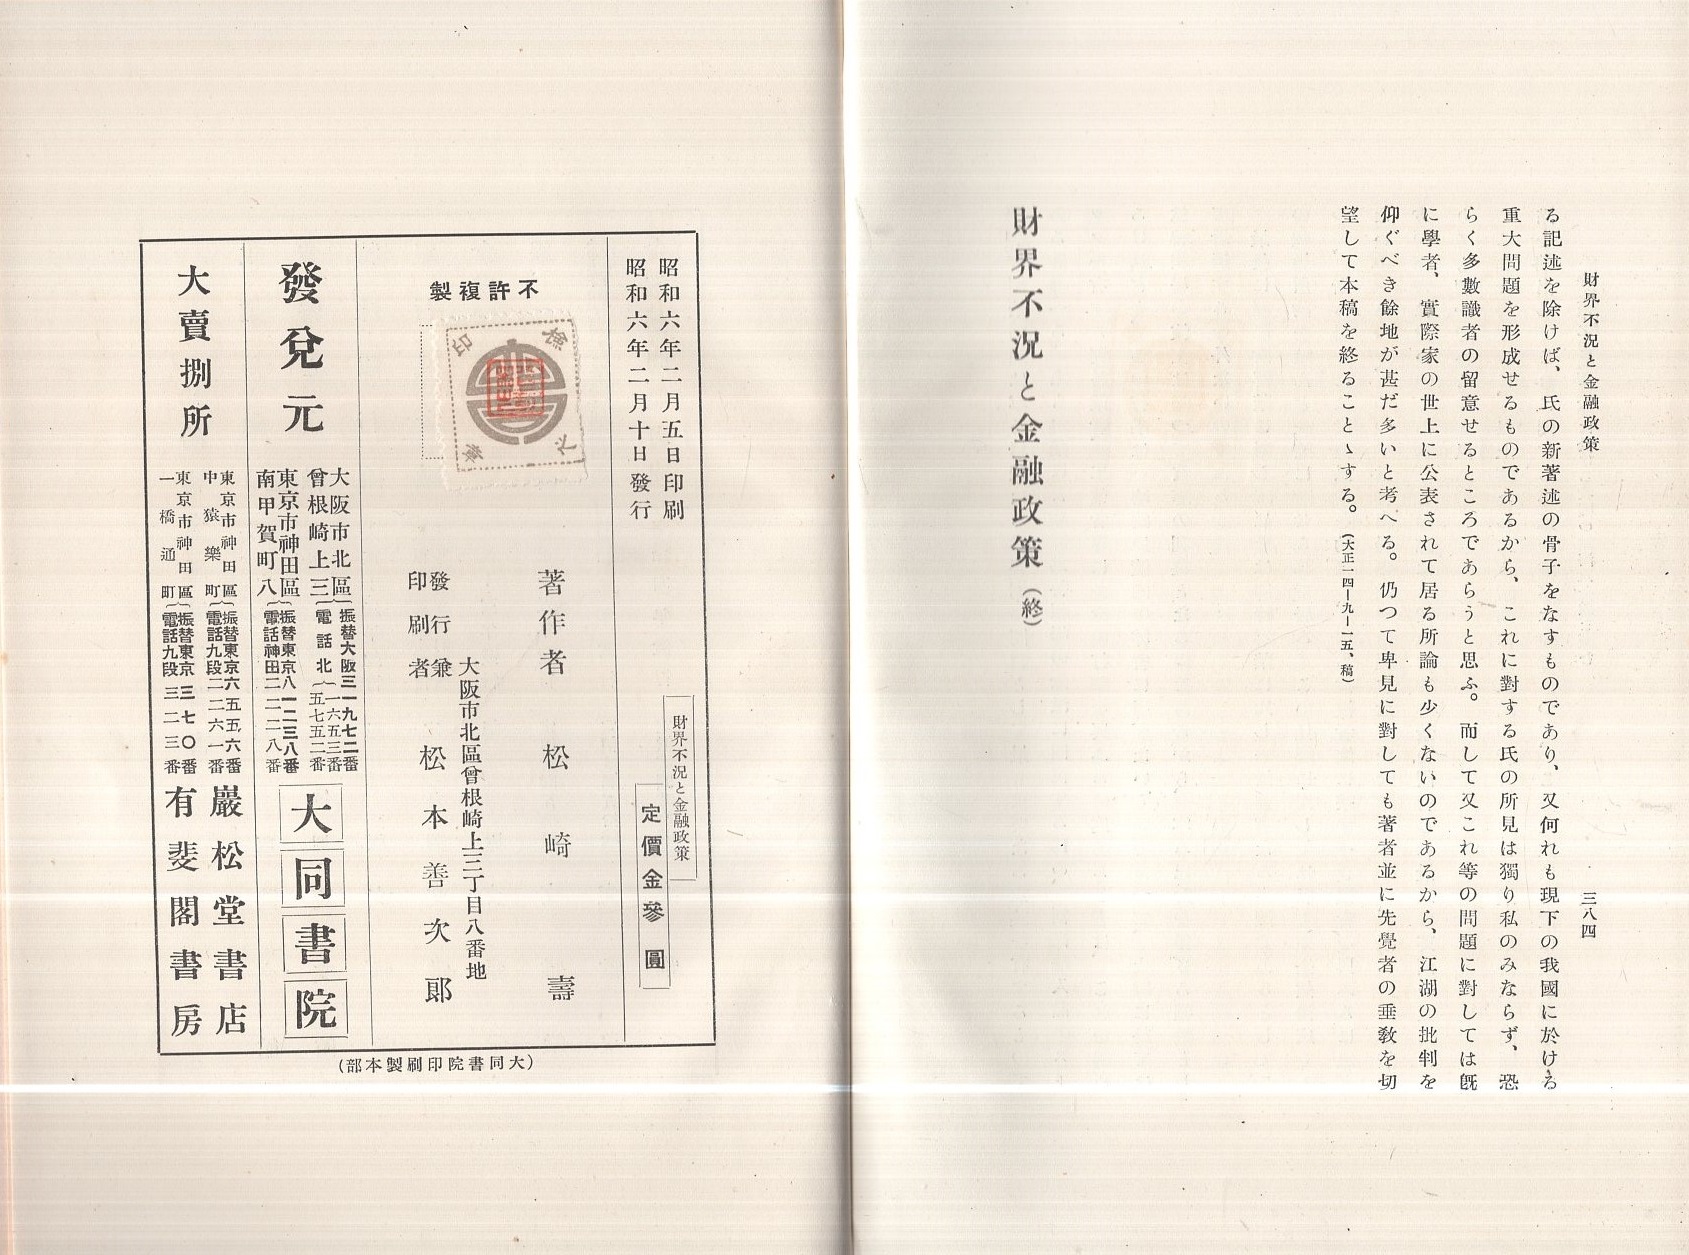 財界不況と金融政策
三八四
る記述を除けば、氏の新著述の骨子をなすものであり、又何れも現下の我國に於ける
重大問題を形成せるものであるから、これに對する氏の所見は獨り私のみならず、恐
らく多數識者の留意せるところであらうと思ふ。而して又これ等の問題に對しては既
に學者、實際家の世上に公表されて居る所論も少くないのであるから、江湖の批判を
仰ぐべき餘地が甚だ多いと考へる。仍つて卑見に對しても著者並に先覺者の垂敎を切
望して本稿を終ることゝする。(大正一四—九—一五、稿)
財界不況と金融政策(終)
昭和六年二月五日印刷
昭和六年二月十日發行
財界不況と金融政策
定價金參圓
不許複製
著作者 松崎壽
大阪市北區曾根崎上三丁目八番地
發行兼
印刷者
松本善次郎
發兌元
大阪市北區
曾根崎上三
振替大阪三一九七二番
電話北
一六五三番
五七五二番
東京市神田區
南甲賀町八
振替東京八一二三八番
電話神田二二二八番
大同書院
大賣捌所
東京市神田區
中猿樂町
振替東京六五五六番
電話九段二二六一番
巖松堂書店
東京市神田區
一橋通町
振替東京三七〇番
電話九段三二三番
有斐閣書房
(大同書院印刷製本部)